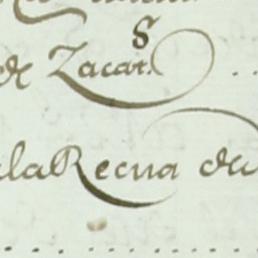 de Zacat.s
la Recua de